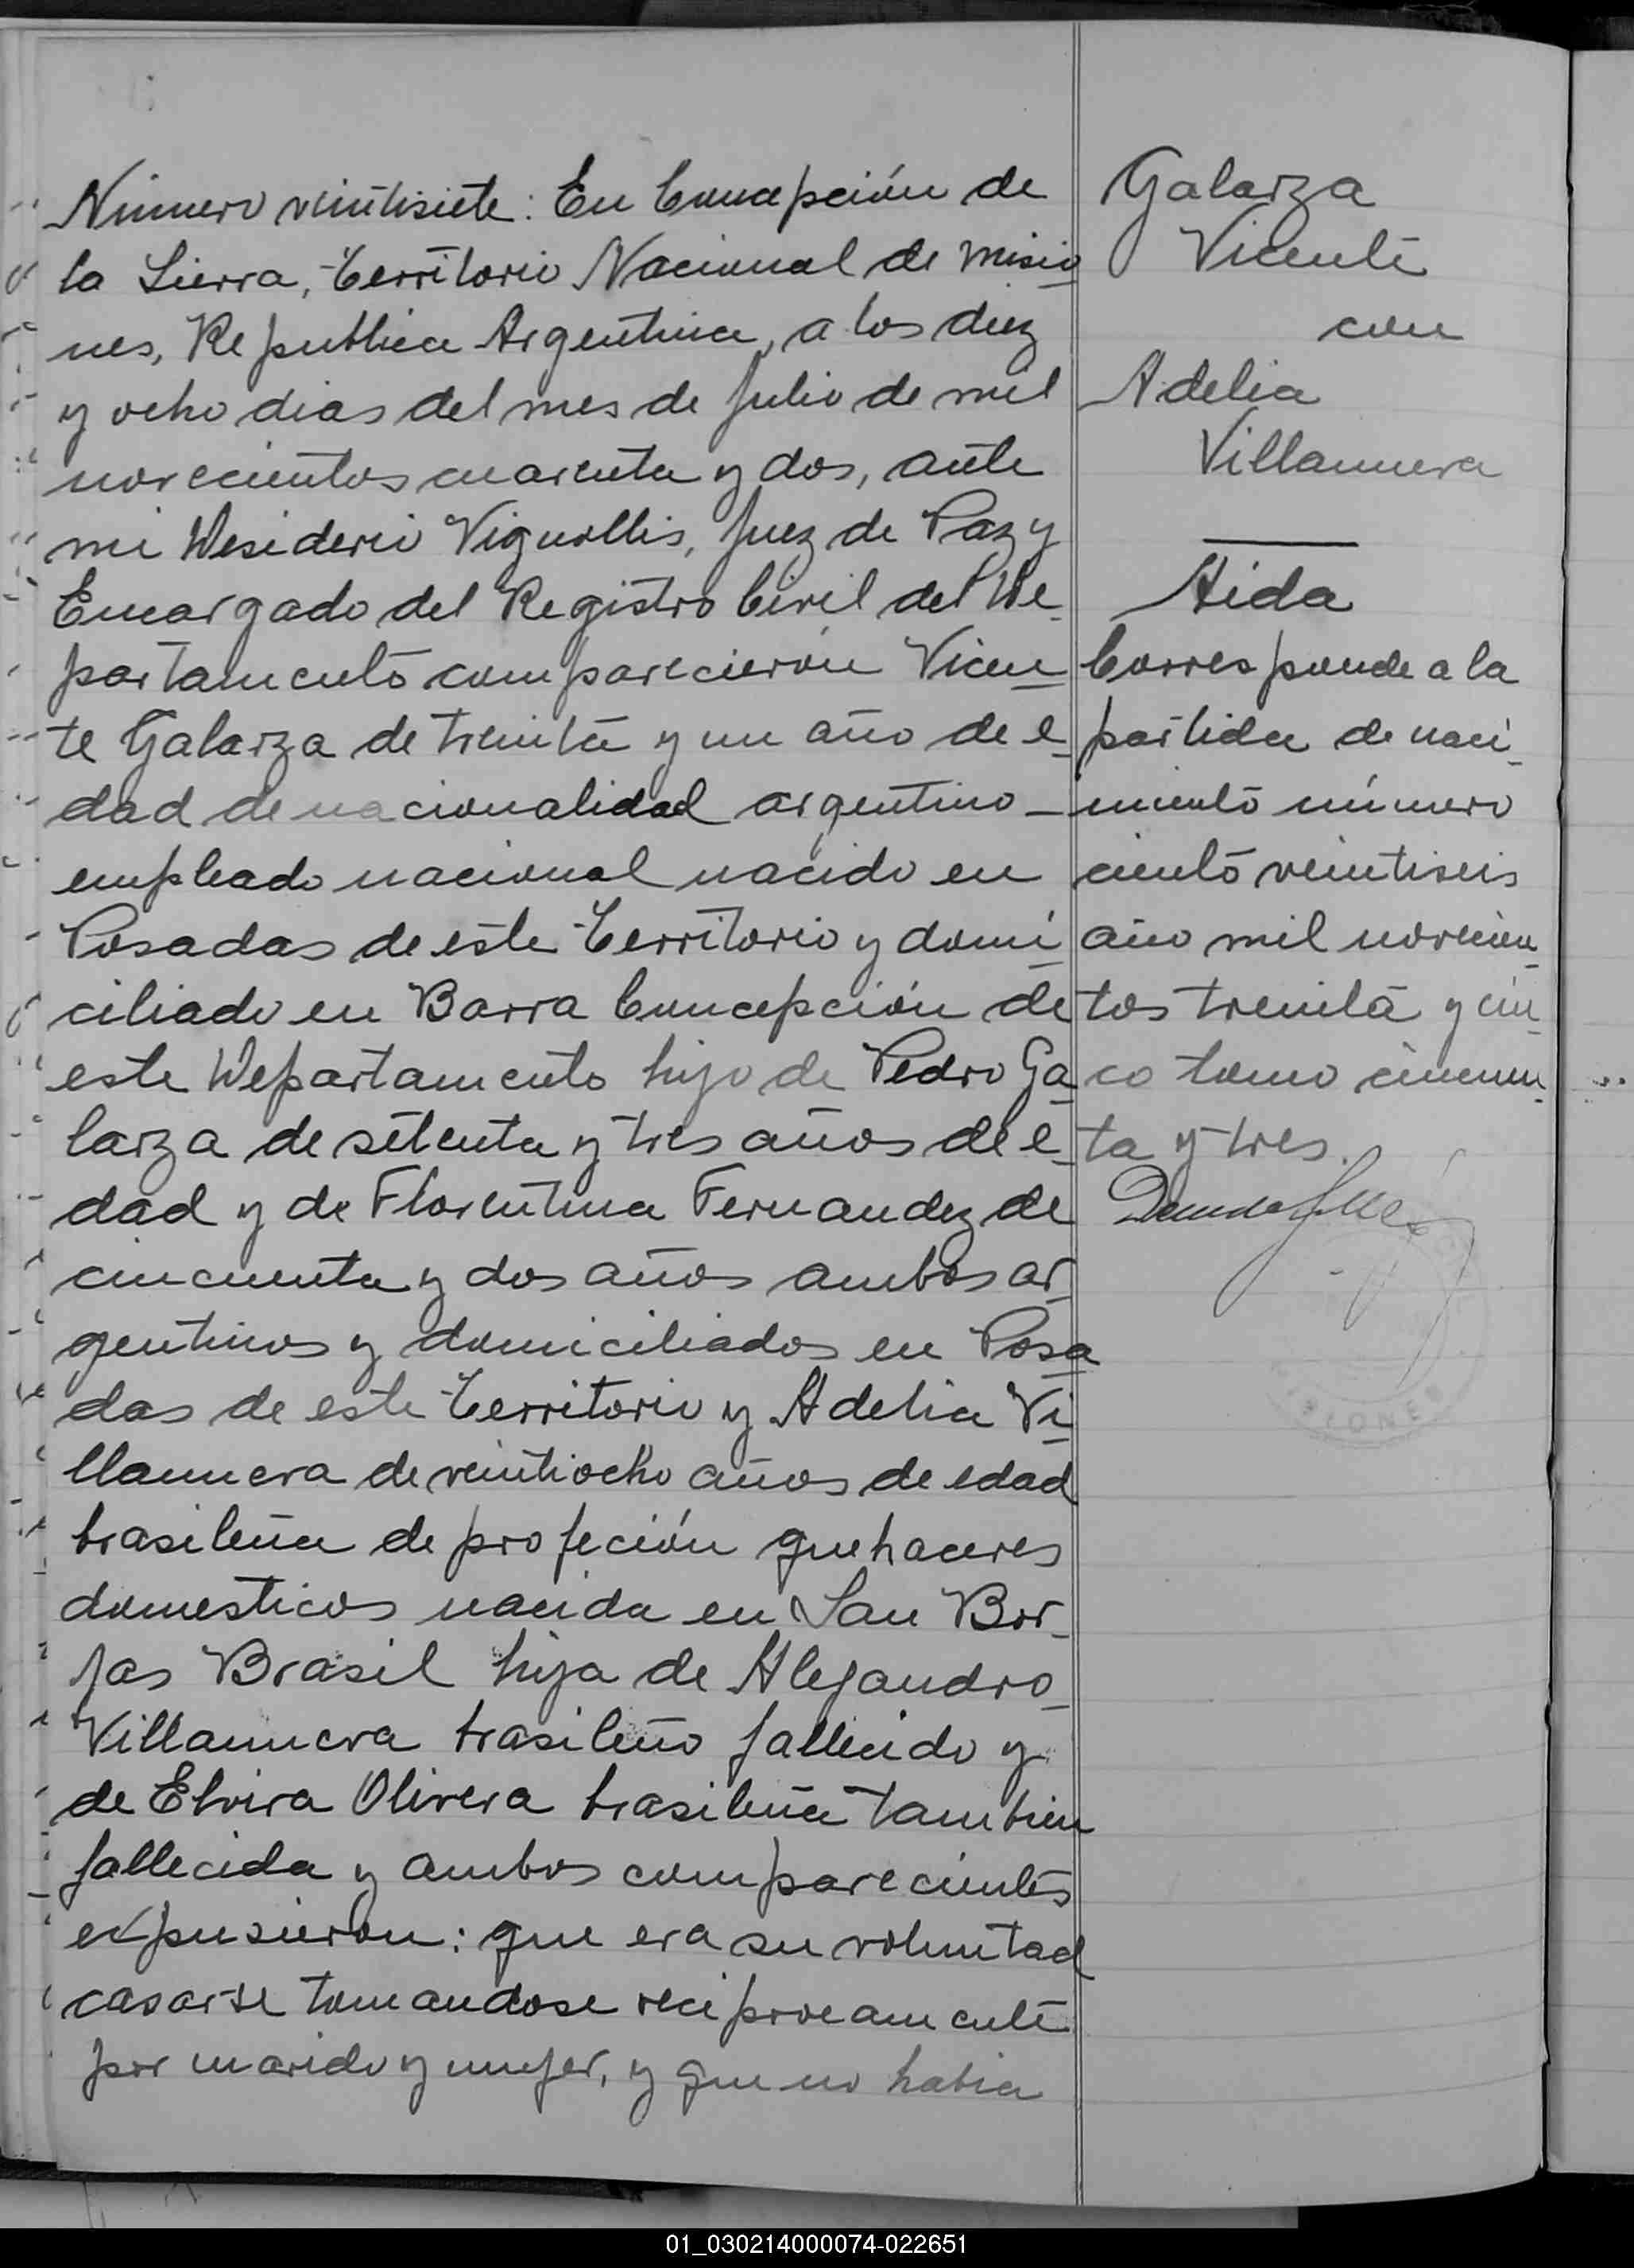 Número veintisiete: En Concepción de
la Sierra, Territorio Nacional de Misio
nes, Republica Argentina, a los diez
y ocho dias del mes de Julio de mil
novecientos cuarenta y dos, ante
mi Desiderio Vignollis, Juez de Paz y
Encargado del Registro Civil del De
partamento comparecieron Vicen
te Galarza de treinta y un año de e
dad de nacionalidad argentino
empleado nacional nacido en
Posadas de este Territorio y domi
ciliado en Barra Concepción de
este Departamento hijo de Pedro Ga
larza de setenta y tres años de e
dad y de Florentina Fernandez de
cincuenta y dos años ambos ar
gentinos y domiciliados en Posa
das de este Territorio y Adelia Vi
llanueva de veintiocho años de edad
brasileña de profeción quehaceres
domesticos nacida en San Bor
jas Brasil hija de Alejandro
Villanueva brasileño fallecido y
de Elvira Olivera brasileña tambien
fallecida y ambos comparecientes
expusieron: que era su voluntad
casarse tomandose reciprocamente
por marido y mujer, y que no habia
Galarza
Vicente
con
Adelia
Villanueva
Aida
Corresponde a la
partida de naci
miento número
ciento veintiseis
año mil novecien
tos treinta y cin
co tomo cincuen
ta y tres.
MISIONES
01_030214000074-022651